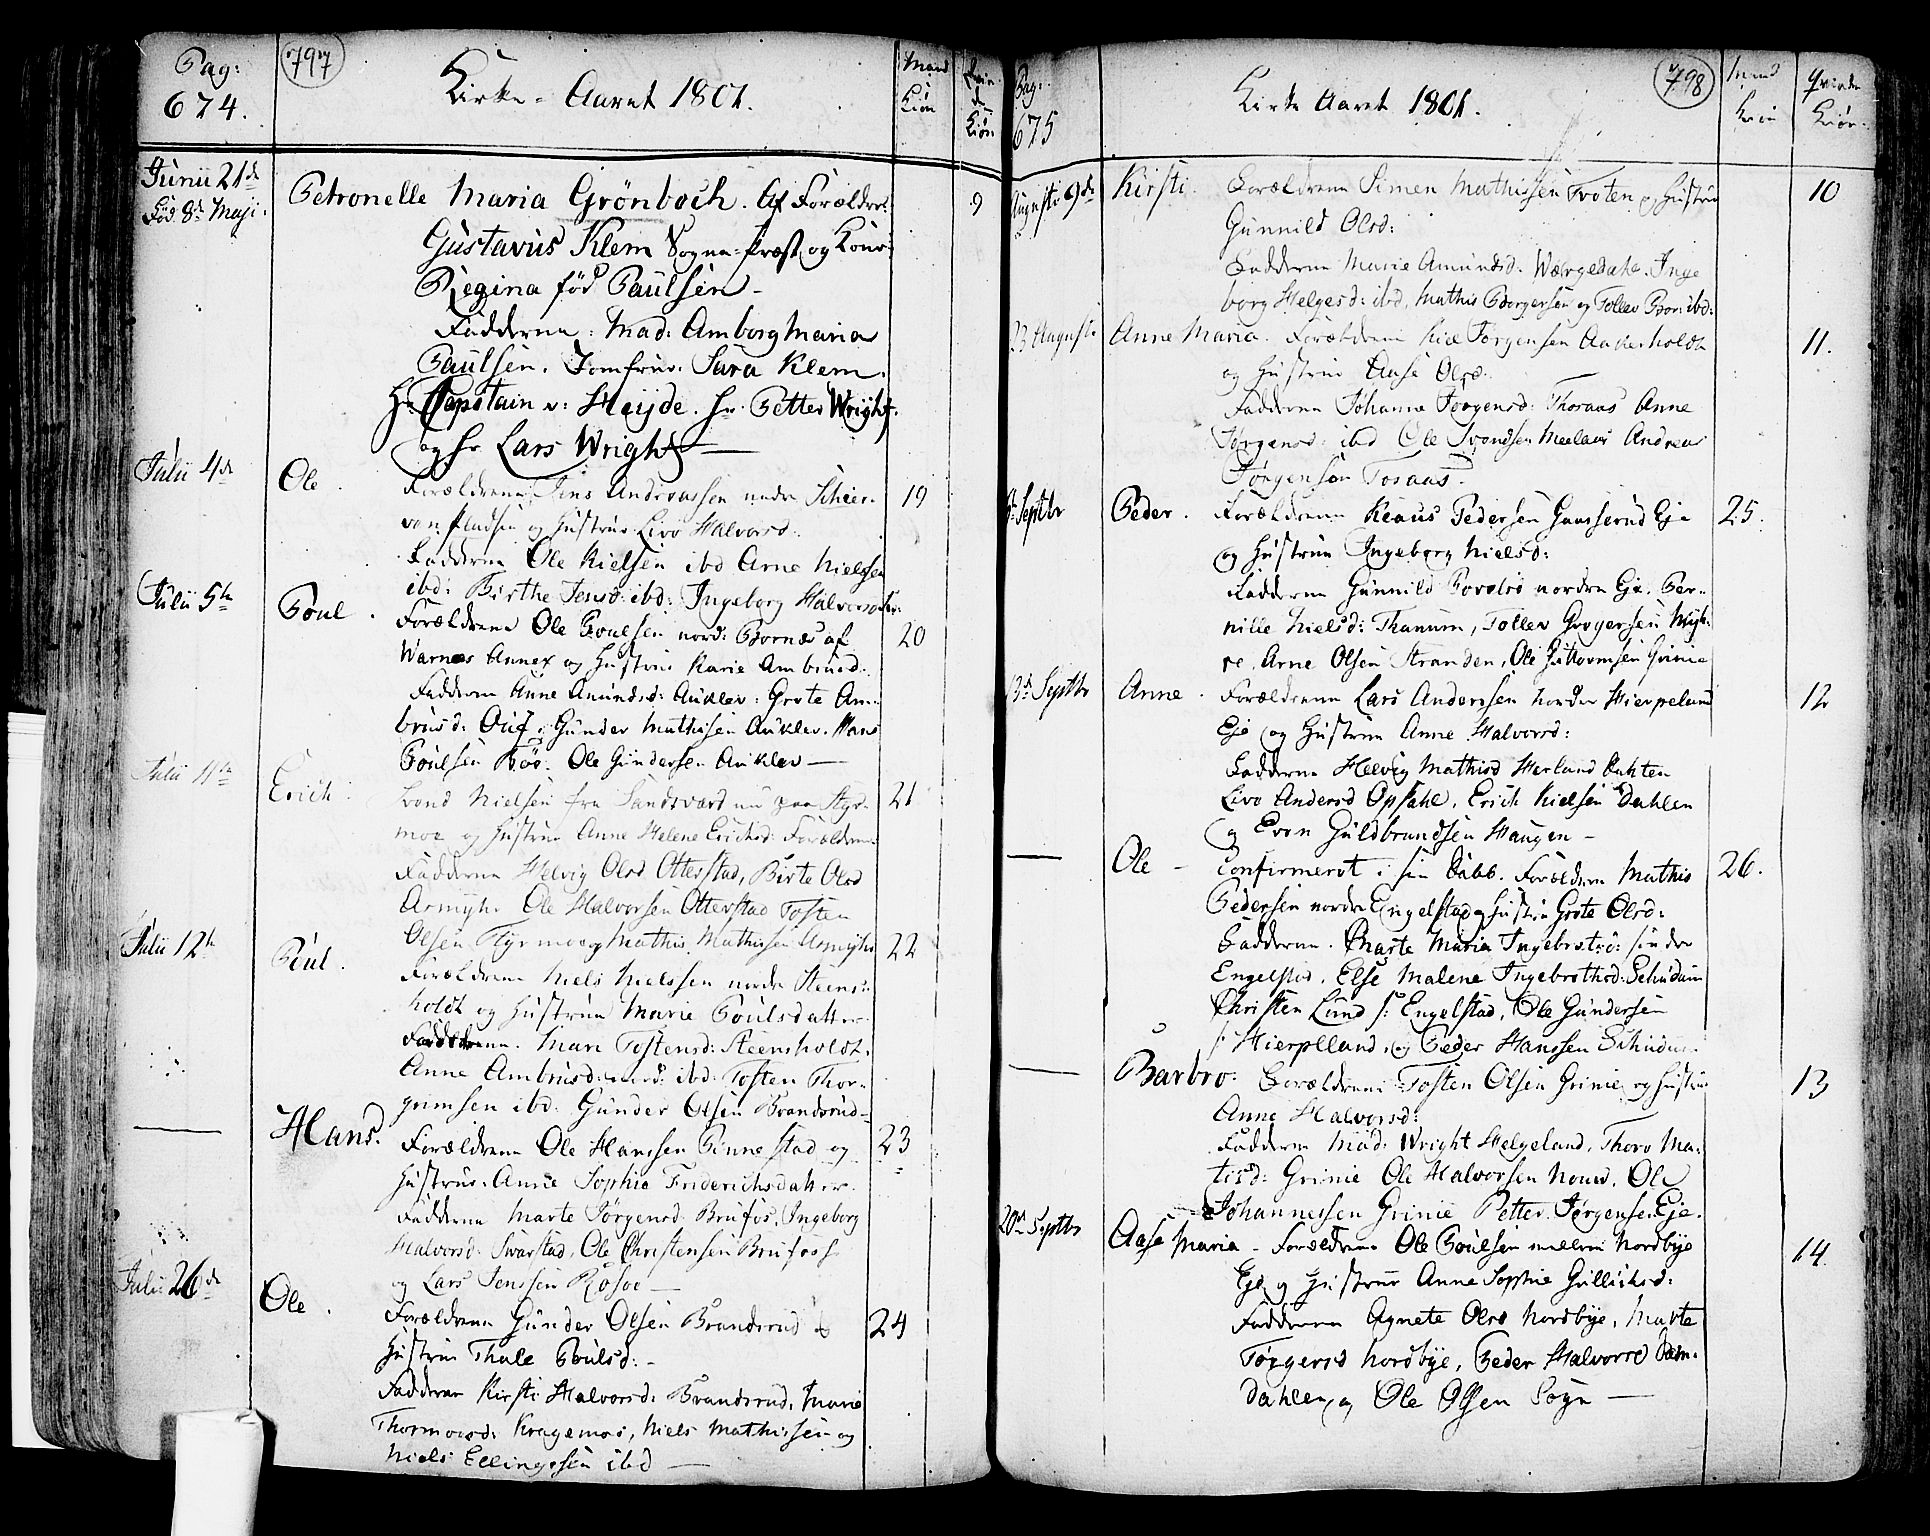 Pag:
674.
797
Kirke-Aaret 1801.
Mand
Kiøn
Kiøn
Junii 21de
Fød 8de Maji.
Petronelle Maria Grönboch. Af Forældre:
9
Gustavus Klem Sogne-Præst og Kone
Regina fød Paulsen -
Fadderne: Mad: Amborg Maria
Paulsen. Jomfrue: Sara Klem.
Hr. Capitain v: Heyde. Hr. Petter Wright.
og Hr Lars Wright —
Julii 4de
Ole.
Forældrene Jens Andreassen nedre
19
og Hustrue Live Halvorsd:
Fadderne Ole Nielsen ibd Arne Nielssen
ibd: Birthe Jensd: ibd: Ingeborg Halvorsd
Julii 5te
Poul.
Forældrene Ole Poulsen nord: Bornæs af
20
Warnæs Annex og Hustrue Karie Ambiørsd:
Fadderne Anne Amundsd: Auklev: Grete Am-
Gunder Mathisen Auklev. Hans
Poulsen Röe. Ole Gundersen Auklev —
Julii 11te
Erich.
Nielsen fra Sandsværd nu paa Styr-
21
moe og Hustrue Anne Helene Erichsd: Forældrene.
Fadderne Helvig Olsd Otterstad, Birte Olsd
Ole Halvorsen Otterstad Tosten
Olsen Styrmoe og Mathis Mathissen
Julii 12te
Poul.
22
Forældrene Niels Nielssen nordre Steens-
holdt og Hustrue Marie Poulsdatter
Fadderene. Mari Tostensd: Steensholdt.
Anne Ambiørsd: nord: ibd: Tosten Thor-
grimsen ibd. Gunder Olsen Brandsrud-
—
Hans.
Forældrene Ole Hanssen Pinnestad og
23
Hustrue. Anne Sophie Friderichsdatter.
Fadderne Marte Jörgensd Brufos, Ingeborg
Halvorsd: Swarstad, Ole Christensen Brufoss
og Lars Jenssen
Julii 26de
Ole.
Forældrene Gunder Olsen Brandsrud &
24
Hustrue Thale Poulsd: -
Fadderne Kirsti Halvorsd: Brandsrud, Marie
Kragemoe, Niels Mathissen og
Niels Ellingssen ibd —
Pag:
675
Kirke Aaret 1801.
798
Mand
Kiøn
Qvinde
Kiøn.
Augusti 9de
Kirsti.
Forældrene Simen Mathissen Tvoten og Hustrue
10
Gunnild Olsd:
Fadderne Marie Amundsd: Wærgedahl. Inge
borg Helgesd: ibd, Mathis Borgersen og Tollev Bor: ibd:
23 Augusti
Anne Maria. Forældrene Niel Jørgensen Aakerholdt
11.
og Hustrue Aase Olsd.
Fadderne Johanne Jørgensd: Thoraas Anne
Jørgensd: ibd Ole Svendsen Andreas
Jørgensen Toraas.
Septbr
Peder.
Forældrene Klaus Pedersen Gaasserud Eje
25.
og Hustrue Ingeborg Nielsd:
Fadderne Gunnild nordre Eje. Per-
nille Nielsd: Thanum, Tollev Gregersen
Arne Olsen Stranden, Ole Guttormsen Grinie
13de Septbr
Anne.
Forældrene Lars Anderssen nordre Hierpeland
12
Eje og Hustrue Anne Halvorsd:
Fadderne Helvig Mathisd Herland
Live Andersd Opsahl. Erich Nielsen Dahlen
og Even Guldbrandsen Haugen -
—
Ole -
Confirmeret i sin Daab. Forældrene Mathis
26.
Pedersen nordre Engelstad og Hustrue Grete Olsd:
Fadderne. Marte Maria Ingebretsd: søndre
Engelstad, Else Malene Ingebrethsd: Schudum
Christen Lund s: Engelstad, Ole Gundersen
s: Hierpelland, og Peder Hanssen Schudum
—
Barbro.
Forældrene Tosten Olsen Grinie og Hustrue
13
Anne Halvorsd:
Fadderne Mad: Wright Helgeland, Thore Ma-
tisd: Grinie Ole Halvorsen Ole
Johannessen Grinie Petter Jørgensen Eje.
20de Septbr
Aase Maria - Forældrene Ole Poulsen mellem Nordbye
14.
Eje og Hustrue Anne Sophie Gullichsd:
Fadderne Agnete Olsd Nordbye, Marte
Torgersd Nordbye, Peder Halvorsd Dæm-
dahlen og Ole Olsen Sogn —